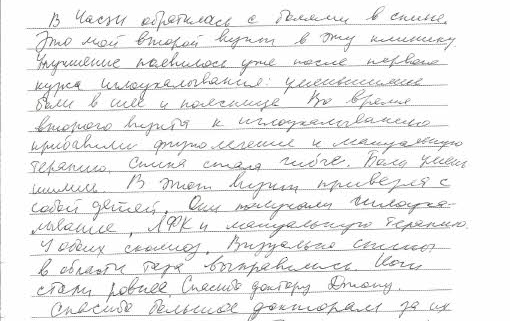 В Части обратилась с болями в спине.
Это мой второй визит в эту клинику
Улучшение появилось уже после первого
курса иглоукалывания: уменьшились
боли в шее и пояснице Во время
второго визита к иглоукалыванию
прибавили физиолечение и мануальную
терапию. Спина стала гибче. Боли умень
шились. В этот визит привезла с
собой детей. Они получали иглоука-
лывание, ЛФК и мануальную терапию.
У обоих сколиоз. Визуально спины
в области таза выправились. Ноги
стали ровнее. Спасибо доктору Джону.
Спасибо большое докторам за их